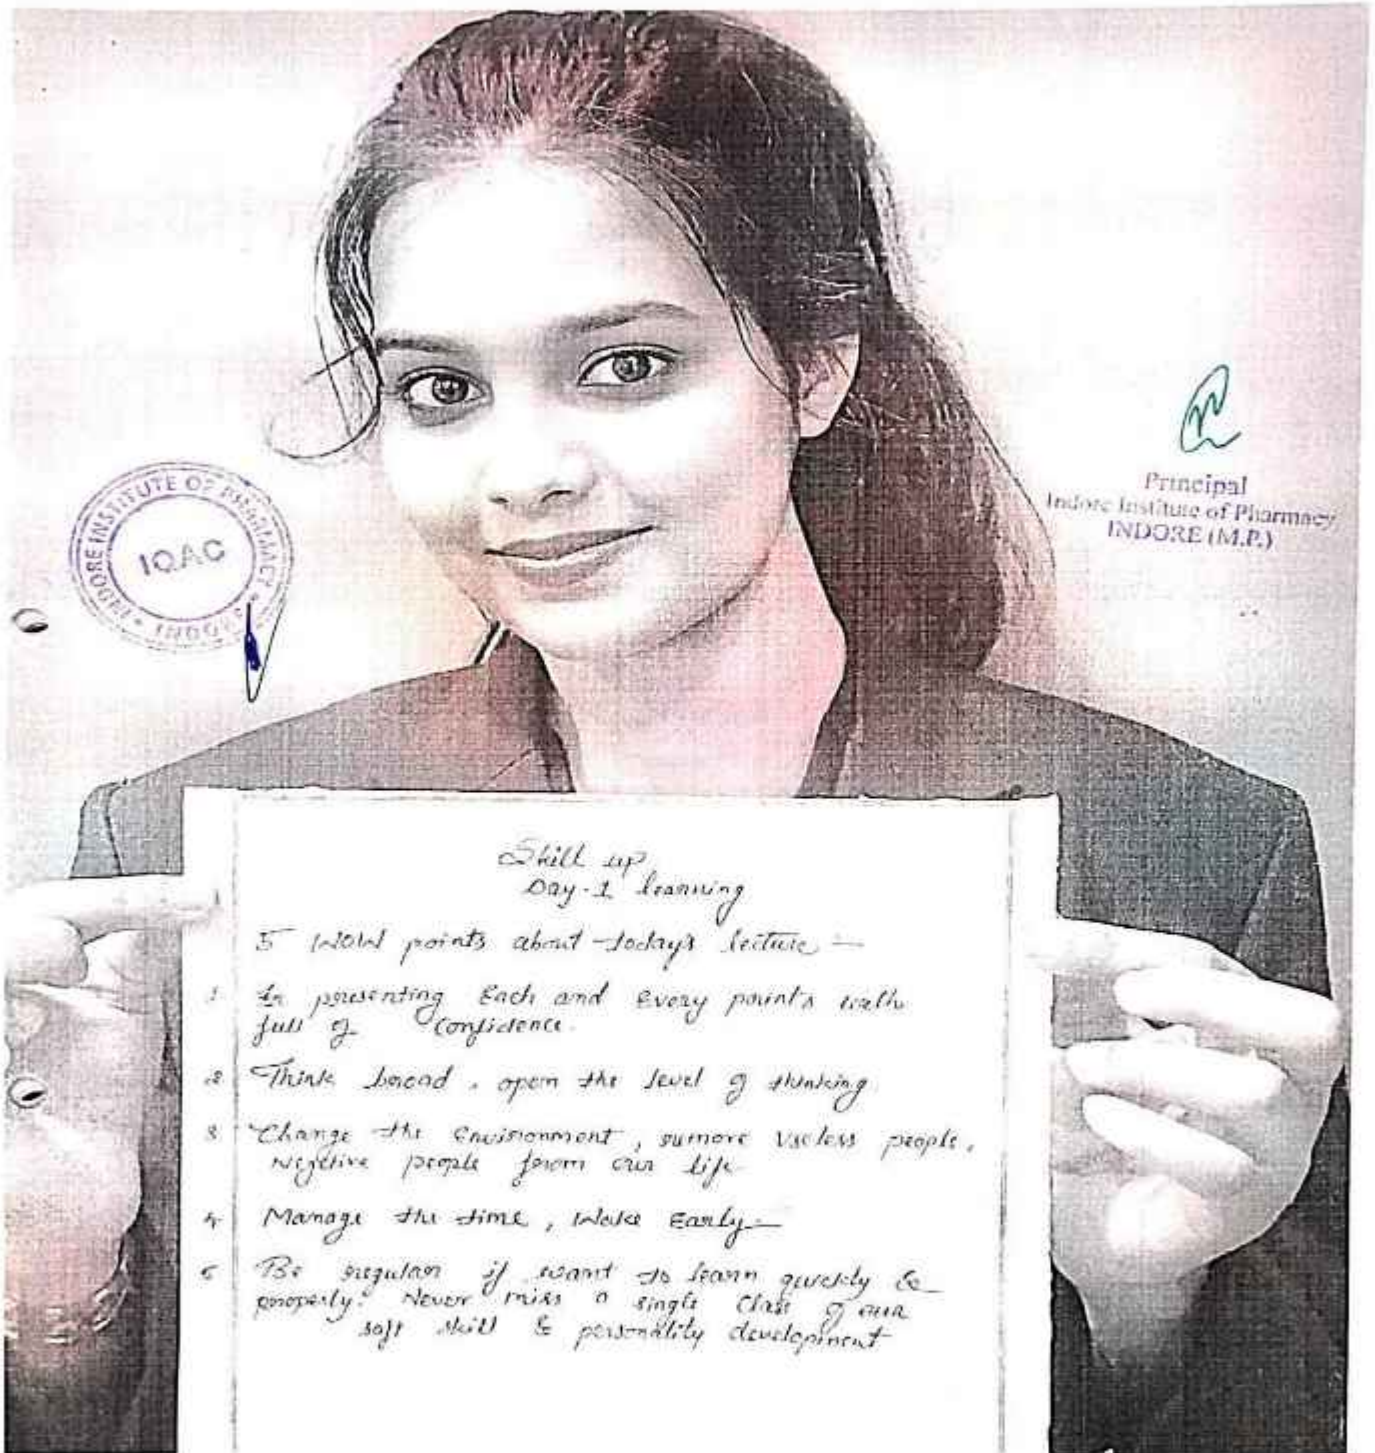 INDORE INSTITUTE OF PHARMACY
IQAC
* INDORE *
Principal
Indore Institute of Pharmacy
INDORE (M.P.)
Skill up
Day-1 learning
5 WOW points about today's lecture :-
1. In presenting Each and Every points with
full of Confidence.
2. Think broad, open the level of thinking.
3. Change the Environment, remove Useless people,
Negetive people from our life
4. Manage the time, Wake Early.
5 Be regular if want to learn quickly &
properly. Never miss a single Class of our
soft skill & personality development